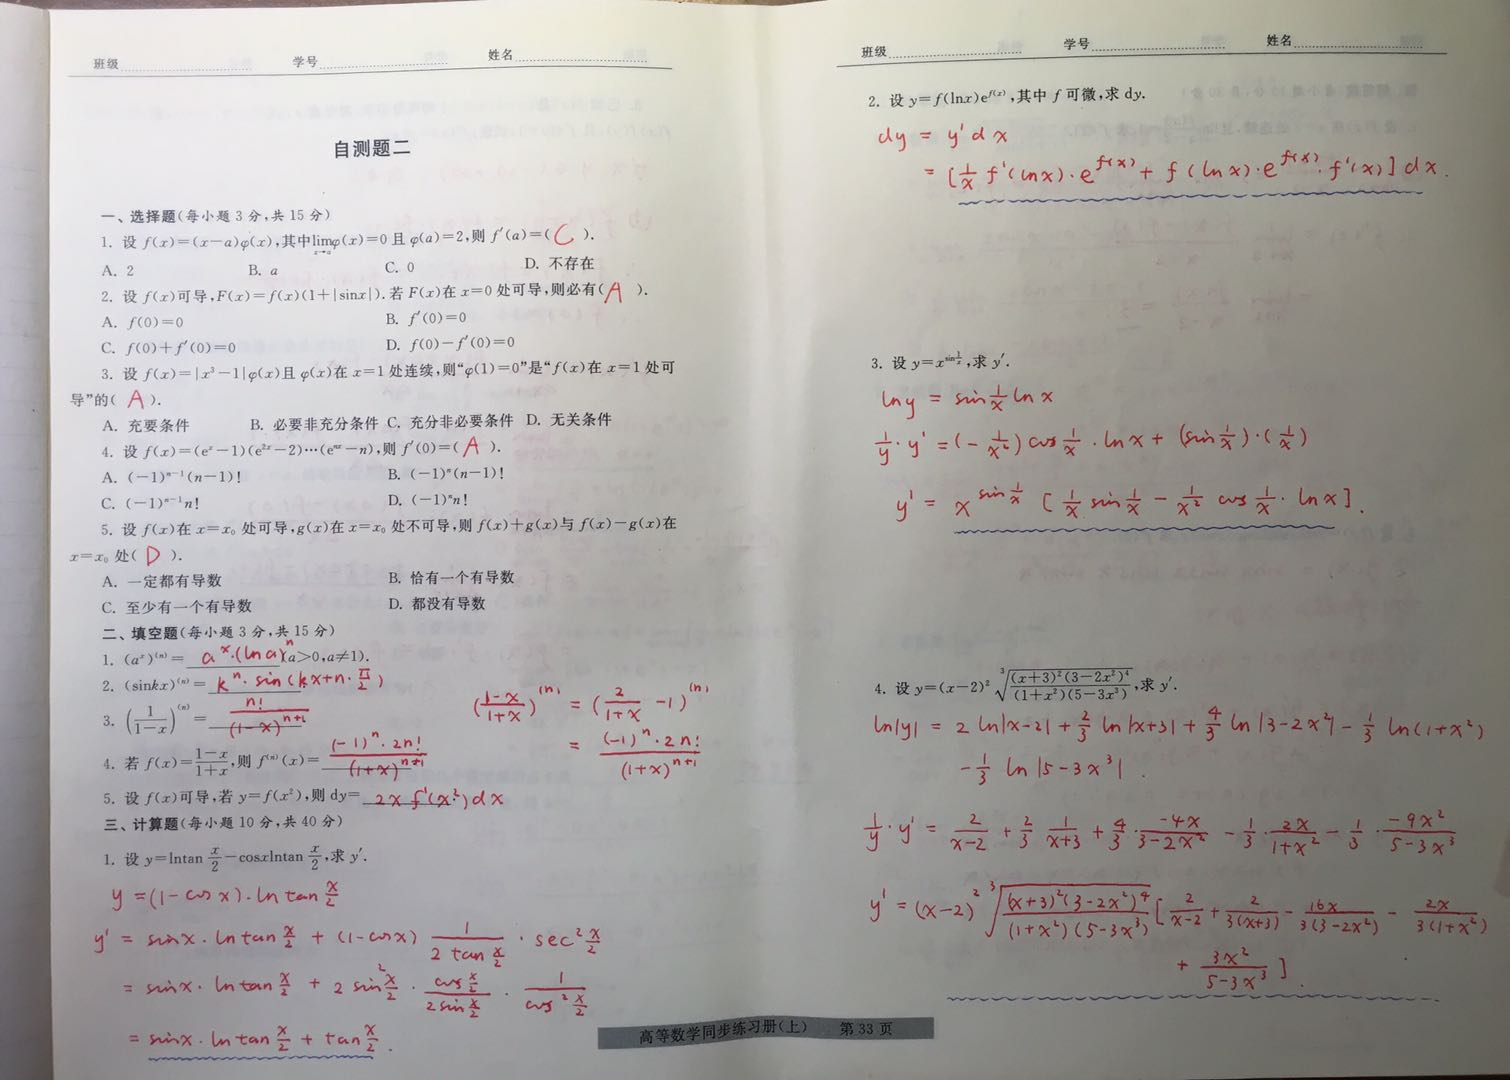 班级 学号 姓名
自测题二
一、选择题(每小题3分,共15分)
1. 设 f(x)=(x-a)φ(x),其中lim_{x→a}φ(x)=0且φ(a)=2,则 f′(a)=( C ).
A. 2 B. a C. 0 D. 不存在
2. 设 f(x)可导,F(x)=f(x)(1+|sinx|).若 F(x)在 x=0 处可导,则必有( A ).
A. f(0)=0 B. f′(0)=0
C. f(0)+f′(0)=0 D. f(0)-f′(0)=0
3. 设 f(x)=|x³-1|φ(x)且 φ(x)在 x=1 处连续,则“φ(1)=0”是“f(x)在 x=1 处可
导”的( A ).
A. 充要条件 B. 必要非充分条件 C. 充分非必要条件 D. 无关条件
4. 设 f(x)=(e^x-1)(e^{2x}-2)⋯(e^{nx}-n),则 f′(0)=( A ).
A. (-1)^{n-1}(n-1)! B. (-1)^n(n-1)!
C. (-1)^{n-1}n! D. (-1)^n n!
5. 设 f(x)在 x=x₀ 处可导,g(x)在 x=x₀ 处不可导,则 f(x)+g(x)与 f(x)-g(x)在
x=x₀ 处( D ).
A. 一定都有导数 B. 恰有一个有导数
C. 至少有一个有导数 D. 都没有导数
二、填空题(每小题3分,共15分)
1. (a^x)^{(n)}= a^x·(ln a)^n (a>0,a≠1).
2. (sinkx)^{(n)}= k^n·sin(kx+n·π/2)
3. (1/(1-x))^{(n)}= n!/(1-x)^{n+1}
((1-x)/(1+x))^{(n)} = (2/(1+x) -1)^{(n)}
= (-1)^n·2n!/(1+x)^{n+1}
4. 若 f(x)=(1-x)/(1+x),则 f^{(n)}(x)= (-1)^n·2n!/(1+x)^{n+1}
5. 设 f(x)可导,若 y=f(x²),则 dy= 2x f′(x²)dx
三、计算题(每小题10分,共40分)
1. 设 y=lntan x/2 -cosxlntan x/2,求 y′.
y =(1-cosx)·ln tan x/2
y′ = sinx·ln tan x/2 + (1-cosx) 1/(2 tan x/2) · sec² x/2
= sinx·ln tan x/2 + 2 sin² x/2 · (cos x/2)/(2 sin x/2) · 1/(cos² x/2)
= sinx·ln tan x/2 + tan x/2 .
高等数学同步练习册(上) 第 33 页
班级 学号 姓名
2. 设 y=f(lnx)e^{f(x)},其中 f 可微,求 dy.
dy = y′dx
= [1/x f′(lnx)·e^{f(x)} + f(lnx)·e^{f(x)}·f′(x)]dx .
3. 设 y=x^{sin 1/x},求 y′.
lny = sin 1/x lnx
1/y·y′ = (-1/x²)cos 1/x · lnx + (sin 1/x)·(1/x)
y′ = x^{sin 1/x} [1/x sin 1/x - 1/x² cos 1/x · lnx].
4. 设 y=(x-2)² ∛((x+3)²(3-2x²)⁴/((1+x²)(5-3x³))),求 y′.
ln|y| = 2 ln|x-2| + 2/3 ln|x+3| + 4/3 ln|3-2x²| - 1/3 ln(1+x²)
- 1/3 ln|5-3x³| .
1/y·y′ = 2/(x-2) + 2/3 1/(x+3) + 4/3·(-4x)/(3-2x²) - 1/3·2x/(1+x²) - 1/3·(-9x²)/(5-3x³)
y′ = (x-2)² ∛((x+3)²(3-2x²)⁴/((1+x²)(5-3x³))) [2/(x-2) + 2/(3(x+3)) - 16x/(3(3-2x²)) - 2x/(3(1+x²))
+ 3x²/(5-3x³)].